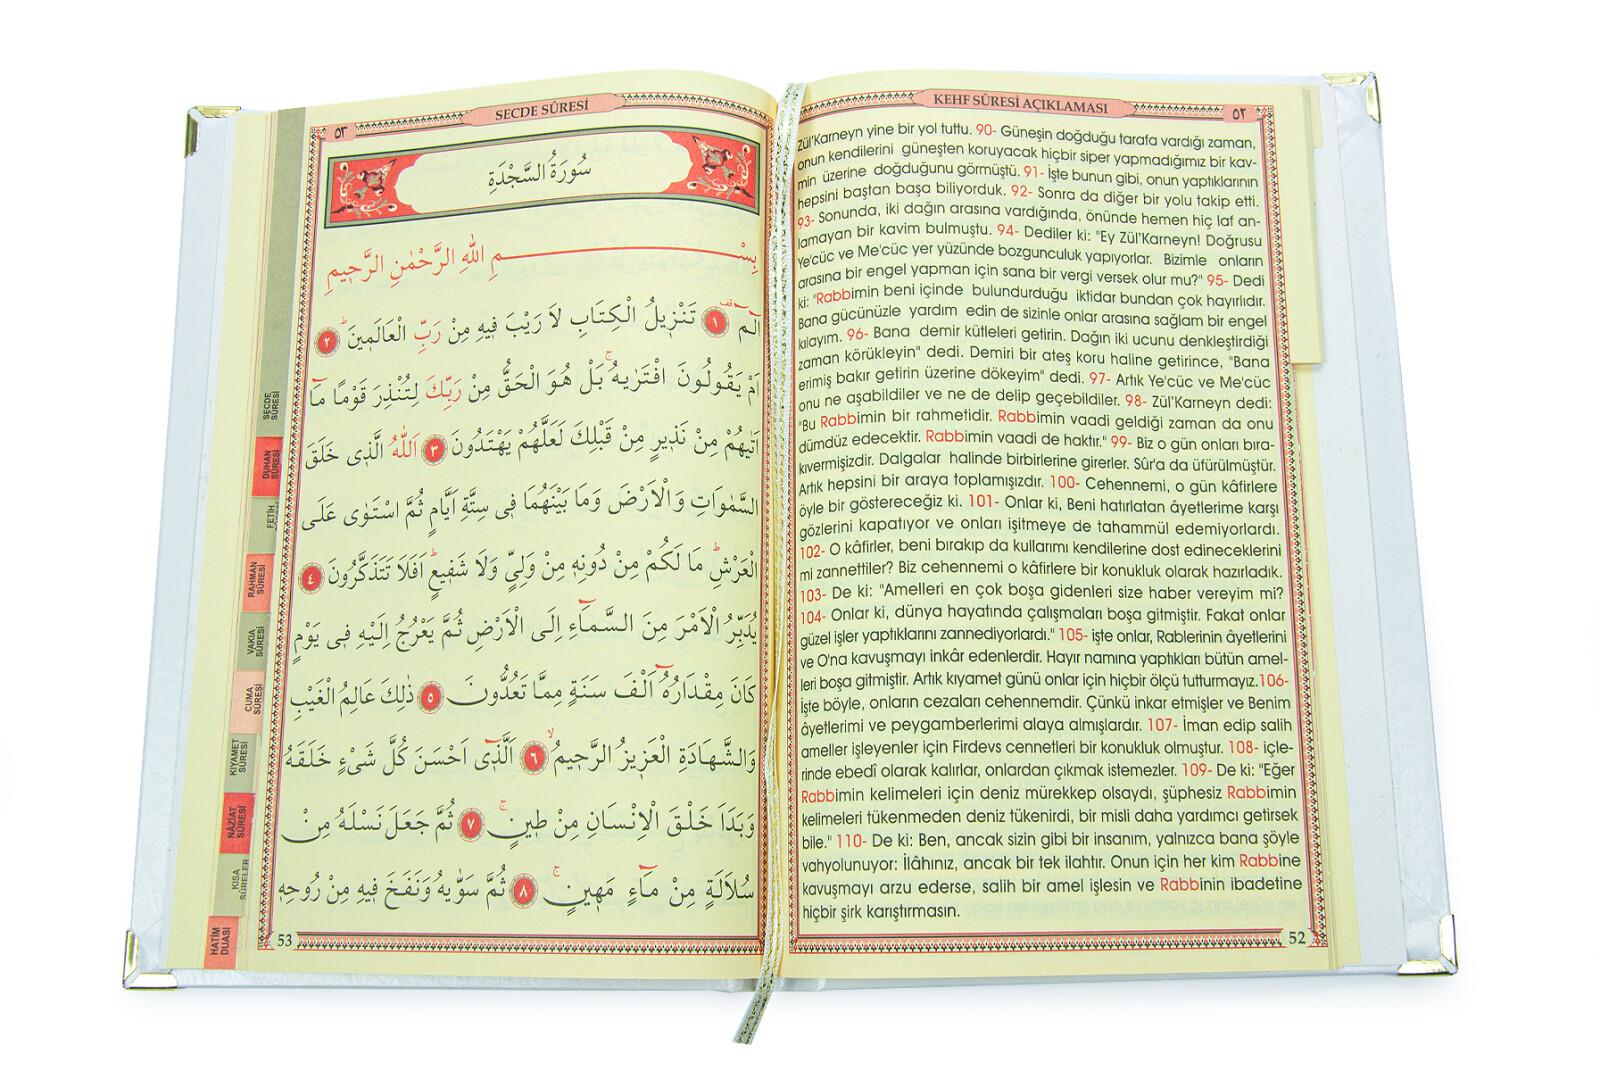 KEHF SÛRESİ AÇIKLAMASI
٥٢
Zül'Karneyn yine bir yol tuttu. 90- Güneşin doğduğu tarafa vardığı zaman,
onun kendilerini güneşten koruyacak hiçbir siper yapmadığımız bir kav-
min üzerine doğduğunu görmüştü. 91- İşte bunun gibi, onun yaptıklarının
hepsini baştan başa biliyorduk. 92- Sonra da diğer bir yolu takip etti.
93- Sonunda, iki dağın arasına vardığında, önünde hemen hiç laf an-
lamayan bir kavim bulmuştu. 94- Dediler ki: "Ey Zül'Karneyn! Doğrusu
Ye'cüc ve Me'cüc yer yüzünde bozgunculuk yapıyorlar. Bizimle onların
arasına bir engel yapman için sana bir vergi versek olur mu?" 95- Dedi
ki: "Rabbimin beni içinde bulundurduğu iktidar bundan çok hayırlıdır.
Bana gücünüzle yardım edin de sizinle onlar arasına sağlam bir engel
kılayım. 96- Bana demir kütleleri getirin. Dağın iki ucunu denkleştirdiği
zaman körükleyin" dedi. Demiri bir ateş koru haline getirince, "Bana
erimiş bakır getirin üzerine dökeyim" dedi. 97- Artık Ye'cüc ve Me'cüc
onu ne aşabildiler ve ne de delip geçebildiler. 98- Zül'Karneyn dedi:
"Bu Rabbimin bir rahmetidir. Rabbimin vaadi geldiği zaman da onu
dümdüz edecektir. Rabbimin vaadi de haktır." 99- Biz o gün onları bıra-
kıvermişizdir. Dalgalar halinde birbirlerine girerler. Sûr'a da üfürülmüştür.
Artık hepsini bir araya toplamışızdır. 100- Cehennemi, o gün kâfirlere
öyle bir göstereceğiz ki. 101- Onlar ki, Beni hatırlatan âyetlerime karşı
gözlerini kapatıyor ve onları işitmeye de tahammül edemiyorlardı.
102- O kâfirler, beni bırakıp da kullarımı kendilerine dost edineceklerini
mi zannettiler? Biz cehennemi o kâfirlere bir konukluk olarak hazırladık.
103- De ki: "Amelleri en çok boşa gidenleri size haber vereyim mi?
104- Onlar ki, dünya hayatında çalışmaları boşa gitmiştir. Fakat onlar
güzel işler yaptıklarını zannediyorlardı." 105- işte onlar, Rablerinin âyetlerini
ve O'na kavuşmayı inkâr edenlerdir. Hayır namına yaptıkları bütün amel-
leri boşa gitmiştir. Artık kıyamet günü onlar için hiçbir ölçü tutturmayız.106-
İşte böyle, onların cezaları cehennemdir. Çünkü inkar etmişler ve Benim
âyetlerimi ve peygamberlerimi alaya almışlardır. 107- İman edip salih
ameller işleyenler için Firdevs cennetleri bir konukluk olmuştur. 108- içle-
rinde ebedî olarak kalırlar, onlardan çıkmak istemezler. 109- De ki: "Eğer
Rabbimin kelimeleri için deniz mürekkep olsaydı, şüphesiz Rabbimin
kelimeleri tükenmeden deniz tükenirdi, bir misli daha yardımcı getirsek
bile." 110- De ki: Ben, ancak sizin gibi bir insanım, yalnızca bana şöyle
vahyolunuyor: İlâhınız, ancak bir tek ilahtır. Onun için her kim Rabbine
kavuşmayı arzu ederse, salih bir amel işlesin ve Rabbinin ibadetine
hiçbir şirk karıştırmasın.
52
٥٣
SECDE SÛRESİ
سُورَةُ السَّجْدَةِ
بِسْمِ اللهِ الرَّحْمٰنِ الرَّحِيمِ
الٓمٓ ۚ ١ تَنْزِيلُ الْكِتَابِ لَا رَيْبَ فِيهِ مِنْ رَبِّ الْعَالَمِينَ ٢
اَمْ يَقُولُونَ افْتَرٰيهُ بَلْ هُوَ الْحَقُّ مِنْ رَبِّكَ لِتُنْذِرَ قَوْمًا مَٓا
اَتٰيهُمْ مِنْ نَذِيرٍ مِنْ قَبْلِكَ لَعَلَّهُمْ يَهْتَدُونَ ٣ اَللّٰهُ الَّذِى خَلَقَ
السَّمٰوَاتِ وَالْاَرْضَ وَمَا بَيْنَهُمَا فِى سِتَّةِ اَيَّامٍ ثُمَّ اسْتَوٰى عَلَى
الْعَرْشِ مَا لَكُمْ مِنْ دُونِهِ مِنْ وَلِيٍّ وَلَا شَفِيعٍ اَفَلَا تَتَذَكَّرُونَ ٤
يُدَبِّرُ الْاَمْرَ مِنَ السَّمَٓاءِ اِلَى الْاَرْضِ ثُمَّ يَعْرُجُ اِلَيْهِ فِى يَوْمٍ
كَانَ مِقْدَارُهُٓ اَلْفَ سَنَةٍ مِمَّا تَعُدُّونَ ٥ ذٰلِكَ عَالِمُ الْغَيْبِ
وَالشَّهَادَةِ الْعَزِيزُ الرَّحِيمُ ٦ اَلَّذِٓى اَحْسَنَ كُلَّ شَىْءٍ خَلَقَهُ
وَبَدَاَ خَلْقَ الْاِنْسَانِ مِنْ طِينٍ ٧ ثُمَّ جَعَلَ نَسْلَهُ مِنْ
سُلَالَةٍ مِنْ مَٓاءٍ مَهِينٍ ٨ ثُمَّ سَوّٰيهُ وَنَفَخَ فِيهِ مِنْ رُوحِهِ
53
SECDE
SÛRESİ
DUHAN
SÛRESİ
FETİH
RAHMAN
SÛRESİ
VAKIA
SÛRESİ
CUMA
SÛRESİ
KIYAMET
SÛRESİ
NÂZİAT
SÛRESİ
KISA
SÛRELER
HATİM
DUASI